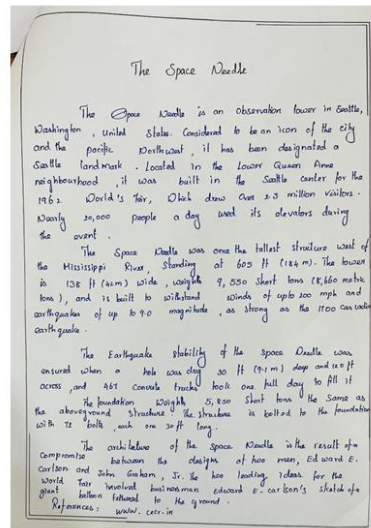 The Space Needle
The Space Needle is an Observation tower in Seattle,
Washington, United States. Considered to be an icon of the city
and the pacific Northwest, it has been designated a
Seattle landmark. Located in the Lower Queen Anne
neighbourhood, it was built in the Seattle center for the
1962 World's Fair, Which drew Over 2.3 million visitors.
Nearly 20,000 people a day used its elevators during
the event.
The Space Needle was once the tallest structure west of
the Mississippi River, Standing at 605 ft (184 m). The tower
is 138 ft (42m) wide, weighs 9,550 Short tons (8,660 metric
tons), and is built to withstand winds of upto 200 mph and
earthquakes of up to 9.0 magnitude, as strong as the 1700 Cascadia
earthquake.
The Earthquake Stability of the Space Needle was
ensured when a hole was dug 30 ft (9.1 m) deep and 120 ft
across, and 467 Concrete trucks took one full day to fill it
The foundation Weighs 5,850 Short tons the Same as
the aboveground structure. The structure is bolted to the foundation
with 72 bolts, each one 30 ft long.
The architecture of the Space Needle is the result of a
Compromise between the designs of two men, Edward E.
Carlson and John Graham, Jr. The two leading ideas for the
World Fair involved businessman Edward E. Carlson's sketch of a
giant balloon tethered to the ground.
References: www.